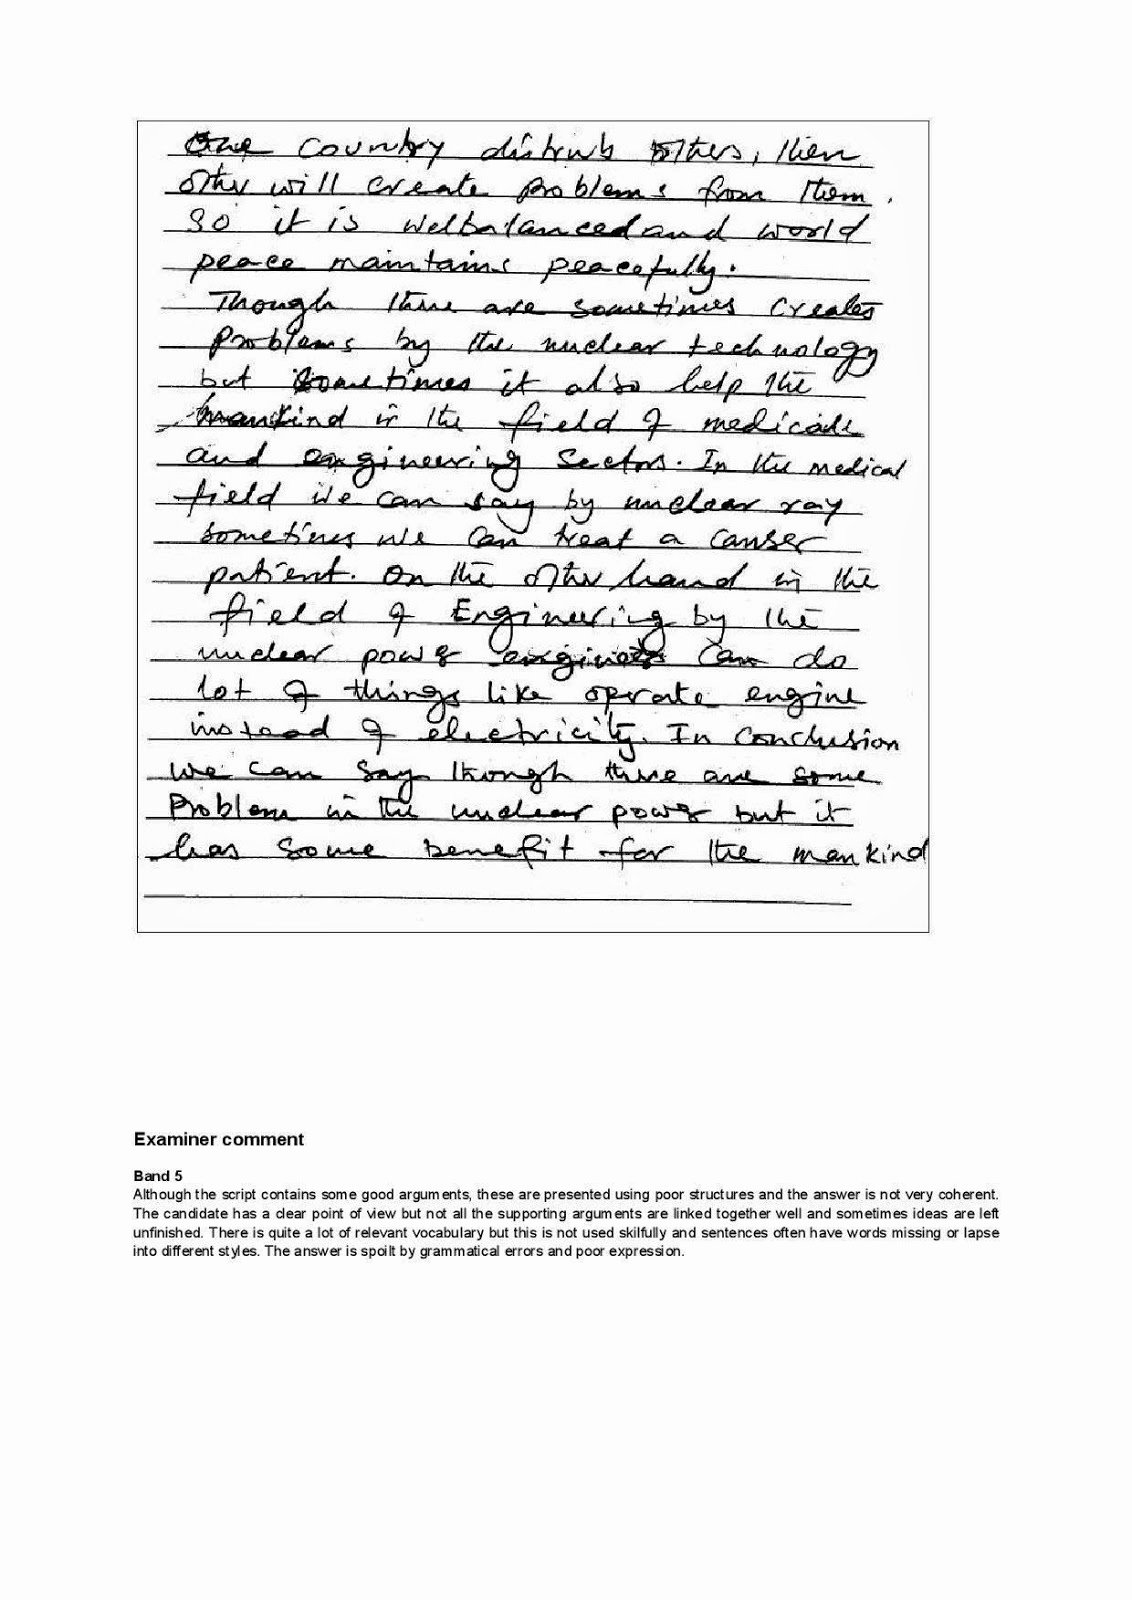 One country distrub others, then
other will create problems from them.
So it is welbalanced and world
peace maintains peacefully.
Though there are sometimes creates
problems by the nuclear technology
but sometimes it also help the
mankind in the field of medicale
and engineering sectors. In the medical
field we can say by nuclear ray
sometimes we can treat a canser
patient. On the other hand in the
field of Engineering by the
nuclear power engineers can do
lot of things like operate engine
instead of electricity. In conclusion
we can say though there are some
Problem in the nuclear power but it
has some benefit for the mankind
Examiner comment
Band 5
Although the script contains some good arguments, these are presented using poor structures and the answer is not very coherent.
The candidate has a clear point of view but not all the supporting arguments are linked together well and sometimes ideas are left
unfinished. There is quite a lot of relevant vocabulary but this is not used skilfully and sentences often have words missing or lapse
into different styles. The answer is spoilt by grammatical errors and poor expression.